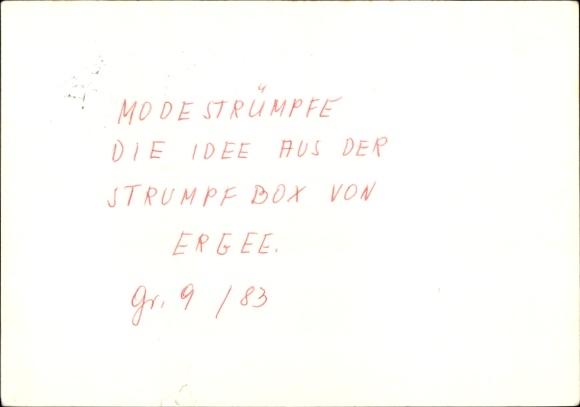 MODESTRÜMPFE
DIE IDEE AUS DER
STRUMPFBOX VON
ERGEE.
Gr. 9 / 83